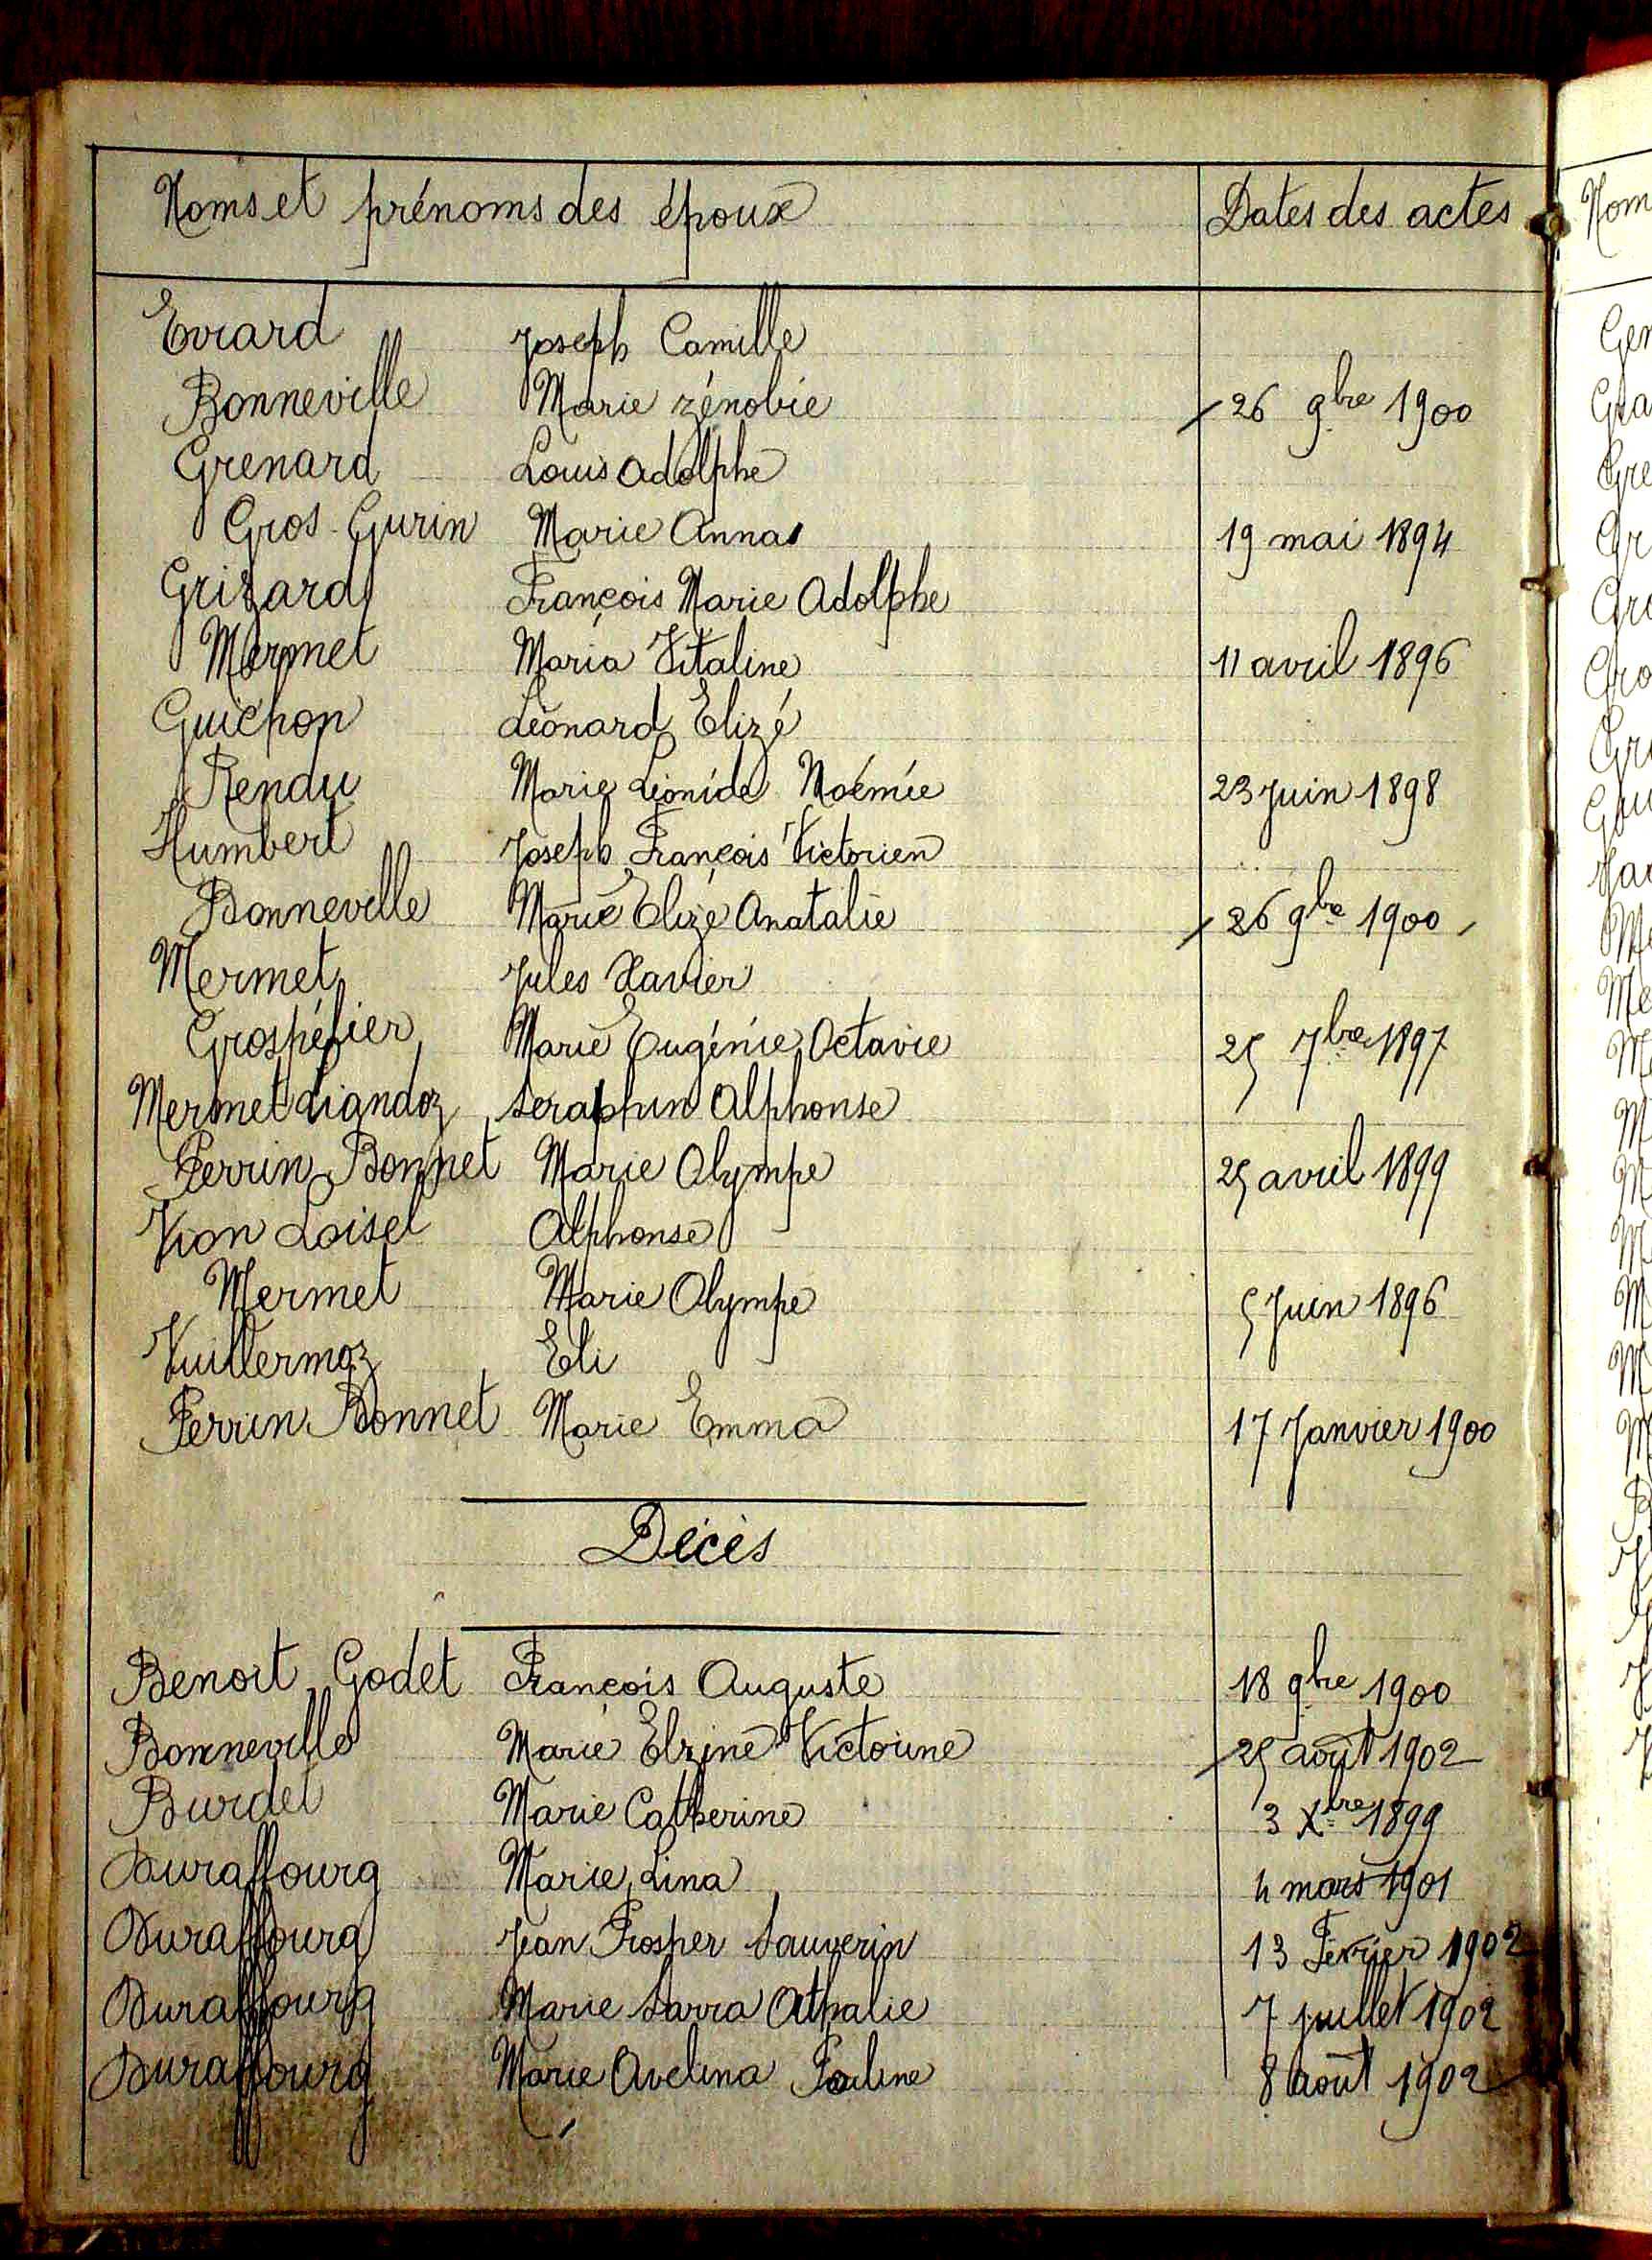 Noms et prénoms des époux Dates des actes
Evrard Joseph Camille
Bonneville Marie zénobie 26 9bre 1900
Grenard Louis Adolphe
Gros-Gurin Marie Anna 19 mai 1894
Grizard François Marie Adolphe
Mermet Maria Vitaline 11 avril 1896
Guichon Léonard Elizé
Rendu Marie Léonide Noémie 23 Juin 1898
Humbert Joseph François Victorien
Bonneville Marie Elize Anatalie 26 9bre 1900
Mermet Jules Xavier
Grospélier Marie Eugénie Octavie 25 7bre 1897
Mermet Liandoz Seraphin Alphonse
Perrin Bonnet Marie Olympe 25 avril 1899
Vion Loisel Alphonse
Mermet Marie Olympe 5 Juin 1896
Vuillermoz Eli
Perrin Bonnet Marie Emma 17 Janvier 1900
Décès
Benoit Godet François Auguste 18 9bre 1900
Bonneville Marie Elzine Victorine 25 août 1902
Burdet Marie Catherine 3 Xbre 1899
Duraffourg Marie Lina 4 mars 1901
Duraffourg Jean Prosper Sauverin 13 Février 1902
Duraffourg Marie Sarra Athalie 7 juillet 1902
Duraffourg Marie Avelina Pauline 8 août 1902